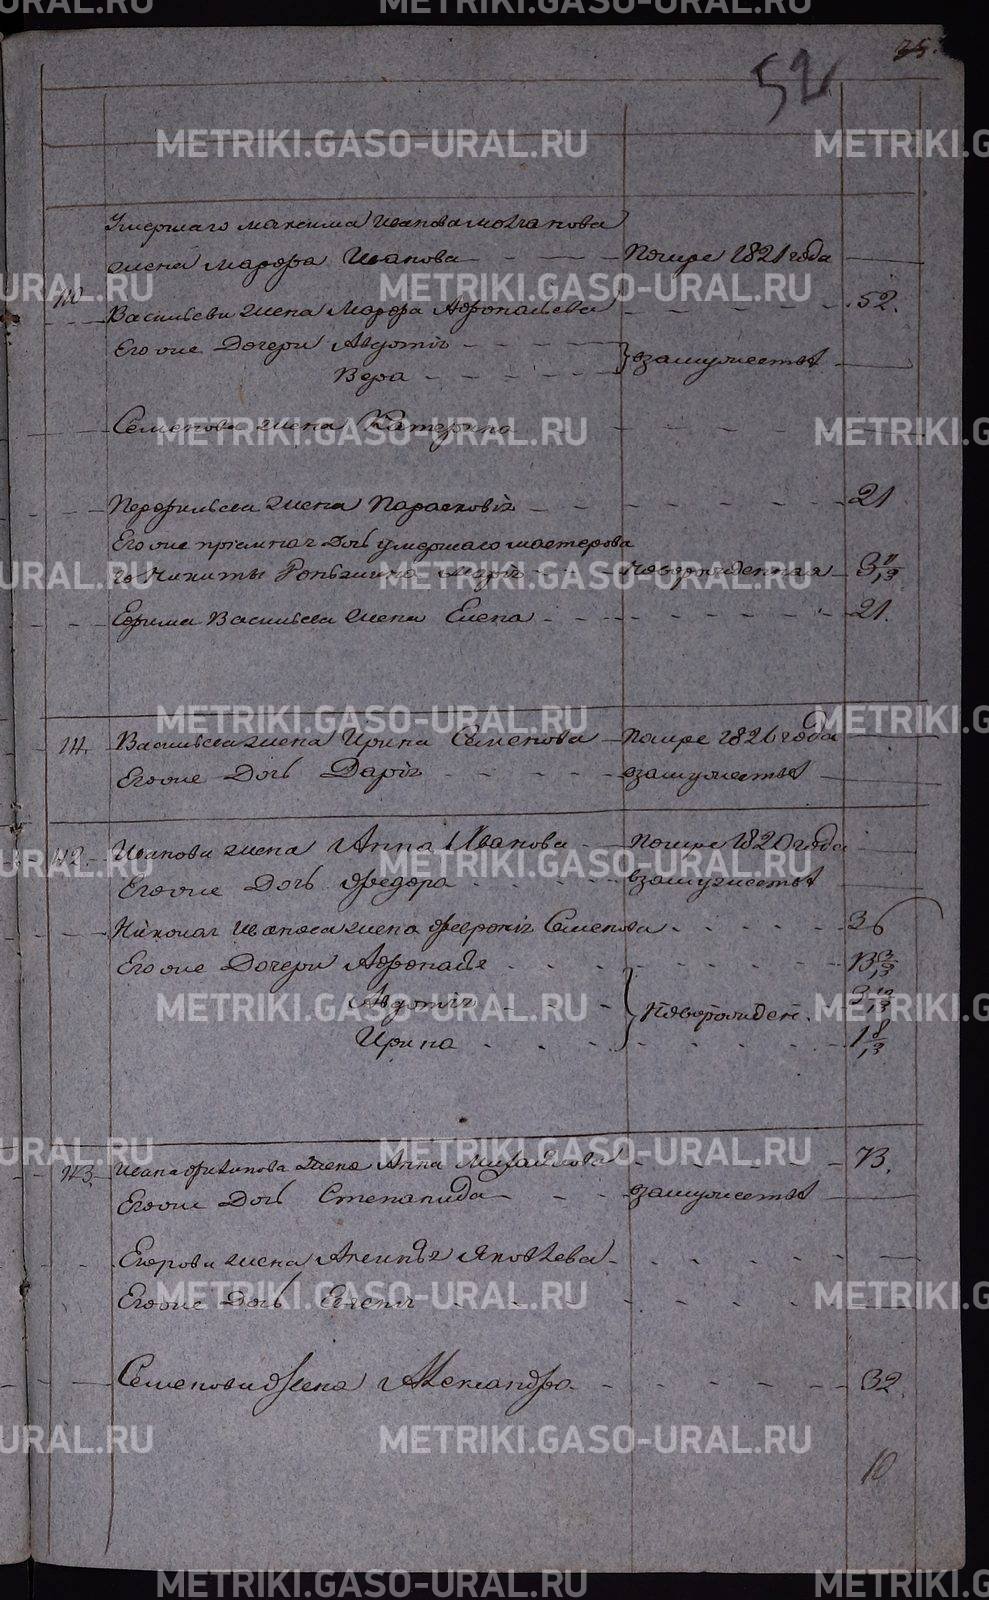 52
35.
Умершаго максима Иванова молчанова
жена марфра Иванова - - - помре 1821 года
110 Васильева жена Марфра Афонасьева - - - 52.
Его оне Дочери Авдотья - - - } взамужестве
Вера - - -
Семенова жена Катерина - - -
Перфильева жена Парасковья - - - 21
Его оне пріемная Дочь умершаго мастерова
го Никиты Марья - - - новорожденная 3 11/13
Ефрима Васильева жена Елена - - - 21.
111. Васильева жена Ирина Семенова - помре 1826 года
Его оне Дочь Дарья - - - взамужестве
112. Иванова жена Анна Иванова - помре 1820 года
Его оне Дочь Федора - - - взамужестве
Николая Иванова жена Февронья Семенова - - - 36
Его оне Дочери Афонасья - - - 13 3/13
Авдотья - - - } Новорожден. 3 10/13
Ирина - - - 1 8/13
113. Ивана жена Анна Михайлова - - - 73.
Его оне Дочь Степанида - - - взамужестве
Егорова жена Яковлева - - -
Его оне Дочь Евгенья - - -
Семенова жена Александра - - - 32.
10
METRIKI.GASO-URAL.RU